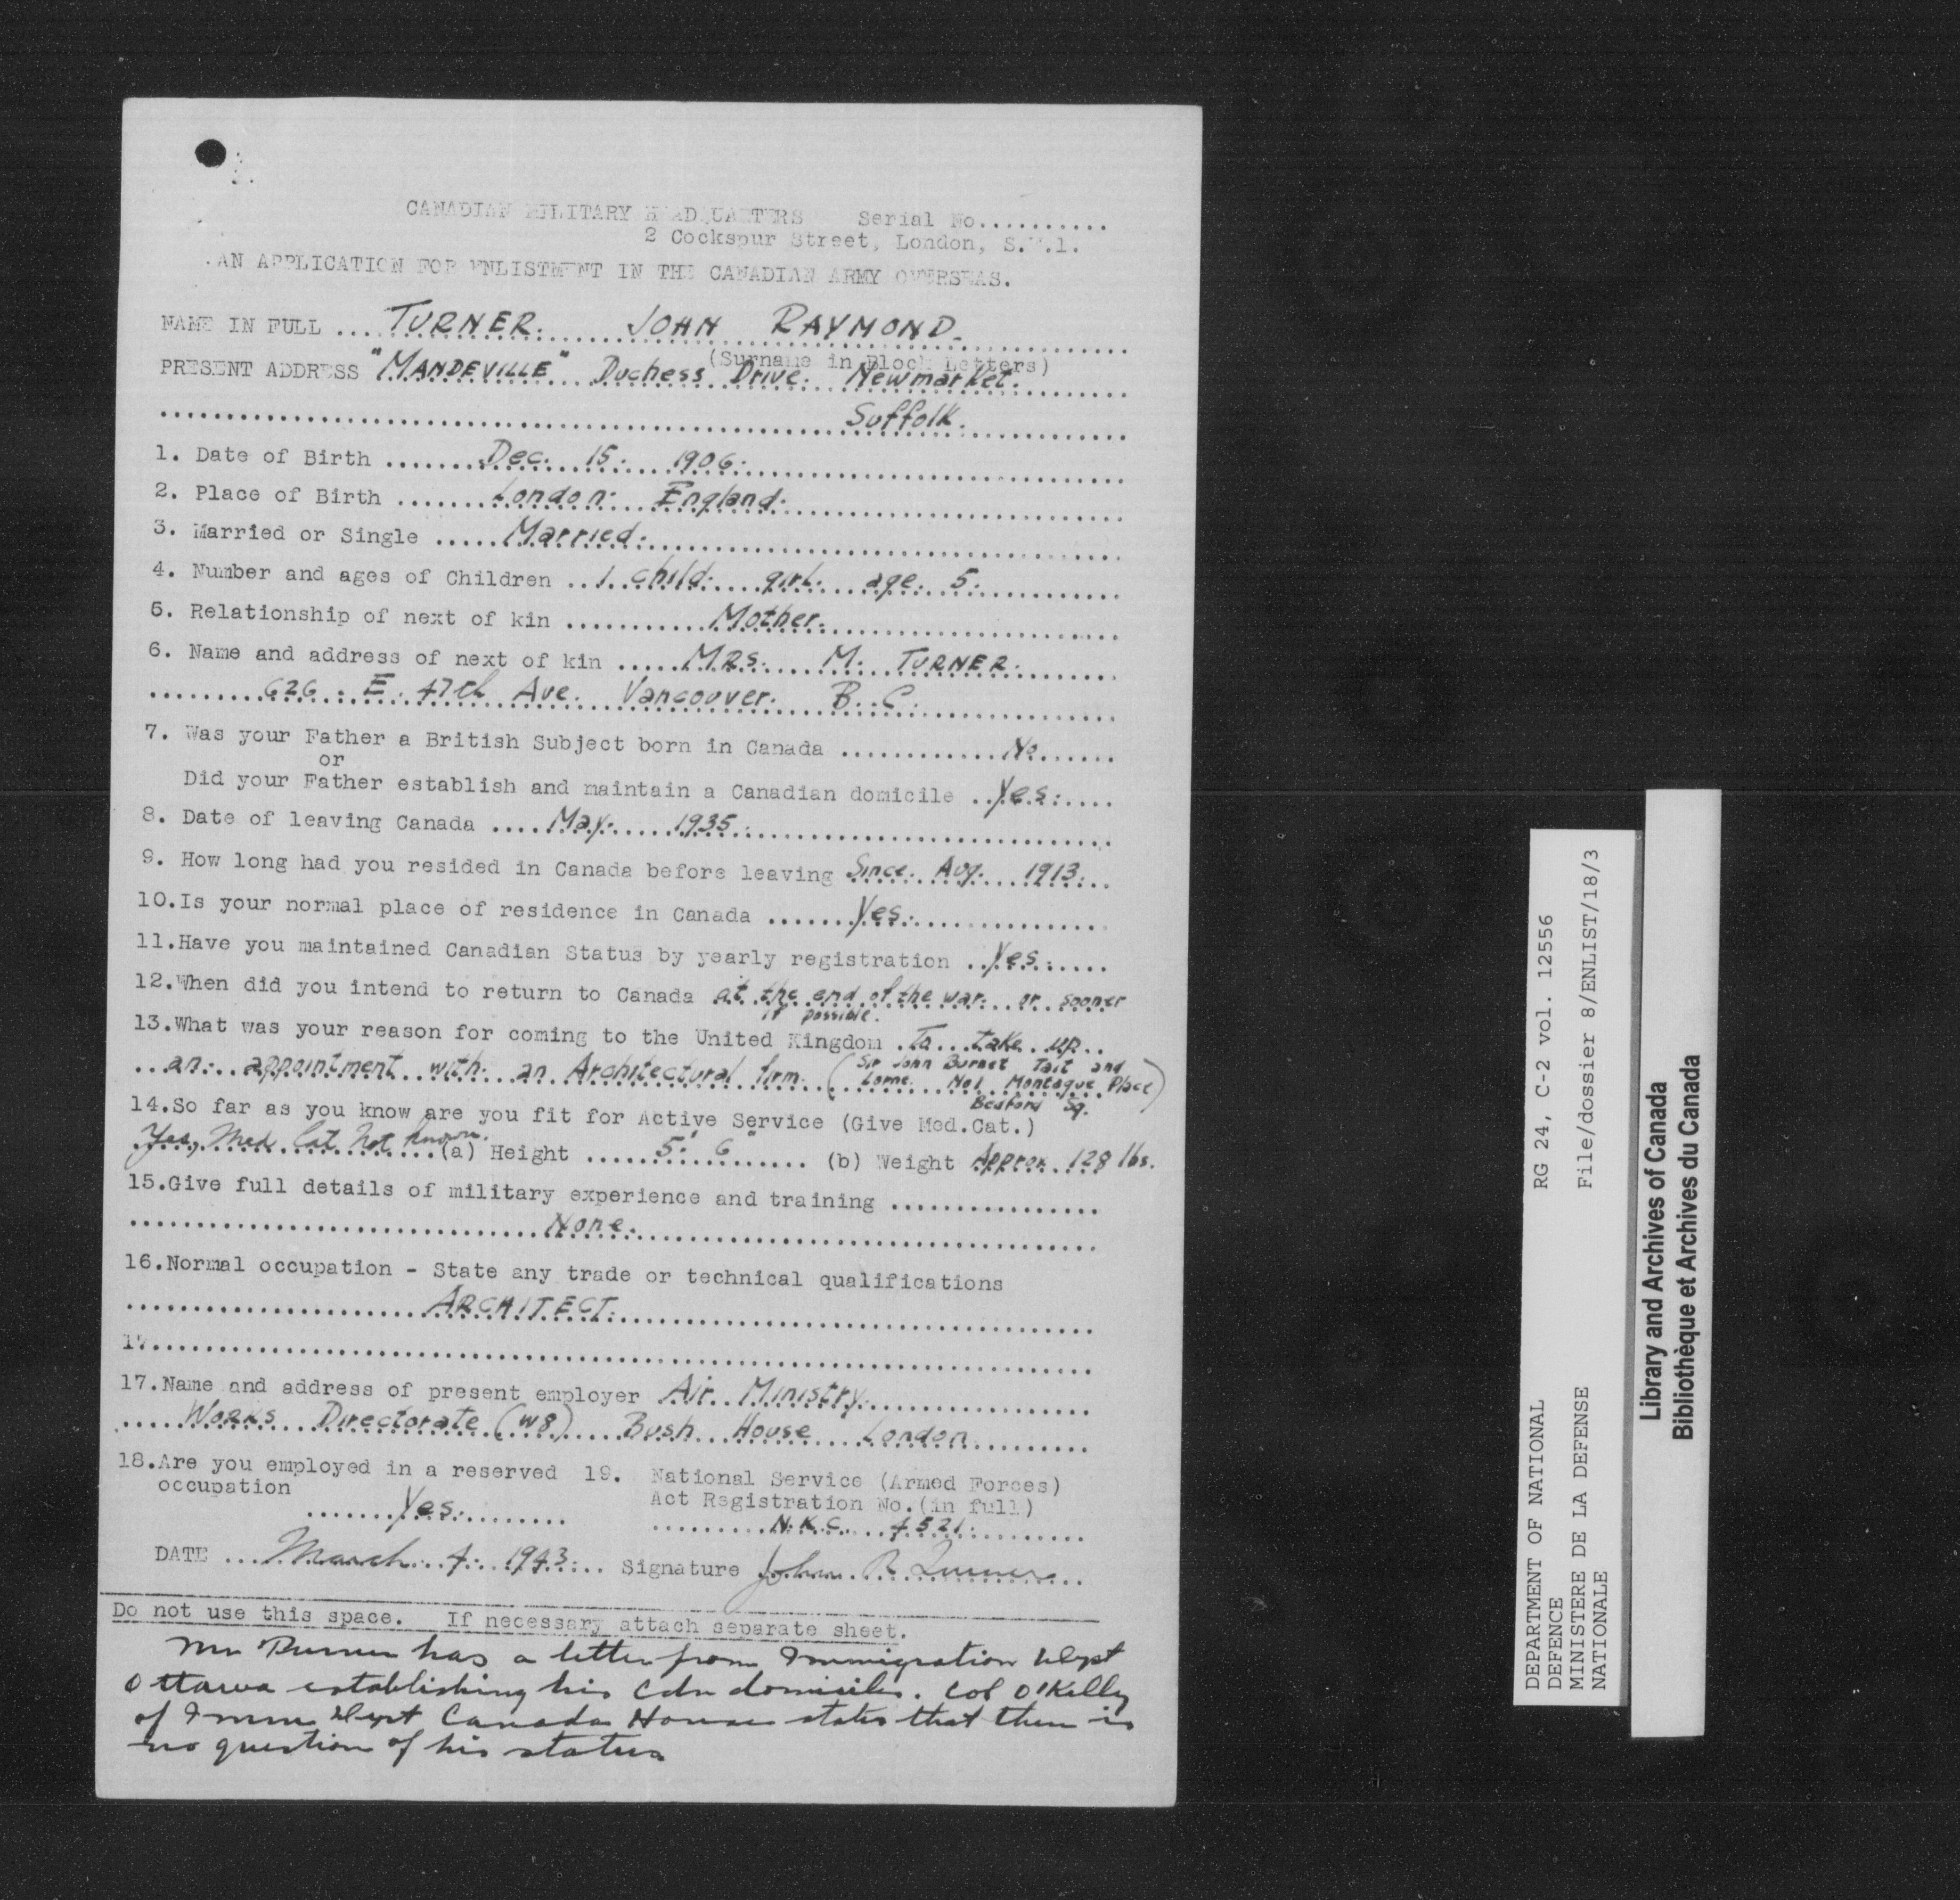 CANADIAN MILITARY HEADQUARTERS Serial No...........
2 Cockspur Street, London, S.W.1.
AN APPLICATION FOR ENLISTMENT IN THE CANADIAN ARMY OVERSEAS.
NAME IN FULL .... TURNER. JOHN RAYMOND.
(Surname in Block Letters)
PRESENT ADDRESS "MANDEVILLE" Duchess Drive. Newmarket.
Suffolk.
1. Date of Birth ....... Dec. 15. 1906.
2. Place of Birth ....... London. England.
3. Married or Single ..... Married.
4. Number and ages of Children .. 1 child. girl. age. 5.
5. Relationship of next of kin ........... Mother.
6. Name and address of next of kin ..... MRS. M. TURNER.
626. E. 47th Ave. Vancouver. B.C.
7. Was your Father a British Subject born in Canada ............ No.
or
Did your Father establish and maintain a Canadian domicile .. Yes.
8. Date of leaving Canada .... May. 1935.
9. How long had you resided in Canada before leaving Since. Aug. 1913.
10.Is your normal place of residence in Canada ....... Yes.
11.Have you maintained Canadian Status by yearly registration .. Yes.
12.When did you intend to return to Canada at the end of the war. or sooner
if possible.
13.What was your reason for coming to the United Kingdom . To take up
an appointment with an Architectural firm. (Sir John Burnet Tait and
Lorne. No1 Montague Place)
Bedford Sq.
14.So far as you know are you fit for Active Service (Give Med.Cat.)
Yes, Med Cat Not known. (a) Height ..... 5' 6" ...... (b) Weight Approx. 128 lbs.
15.Give full details of military experience and training ................
None.
16.Normal occupation - State any trade or technical qualifications
ARCHITECT.
17...........
17.Name and address of present employer Air Ministry.
Works Directorate (W8) Bush House London
18.Are you employed in a reserved 19. National Service (Armed Forces)
occupation Act Registration No.(in full)
....... Yes. ........ N.K.C. 4521.
DATE ... March. 4. 1943. ... Signature John R Turner
Do not use this space. If necessary attach separate sheet.
Mr Turner has a letter from Immigration Dept
Ottawa establishing his Cdn domicile. Col O'Kelly
of Imm Dept Canada House states that there is
no question of his status
RG 24, C-2 vol. 12556
File/dossier 8/ENLIST/18/3
DEPARTMENT OF NATIONAL
DEFENCE
MINISTERE DE LA DEFENSE
NATIONALE
Library and Archives of Canada
Bibliothèque et Archives du Canada